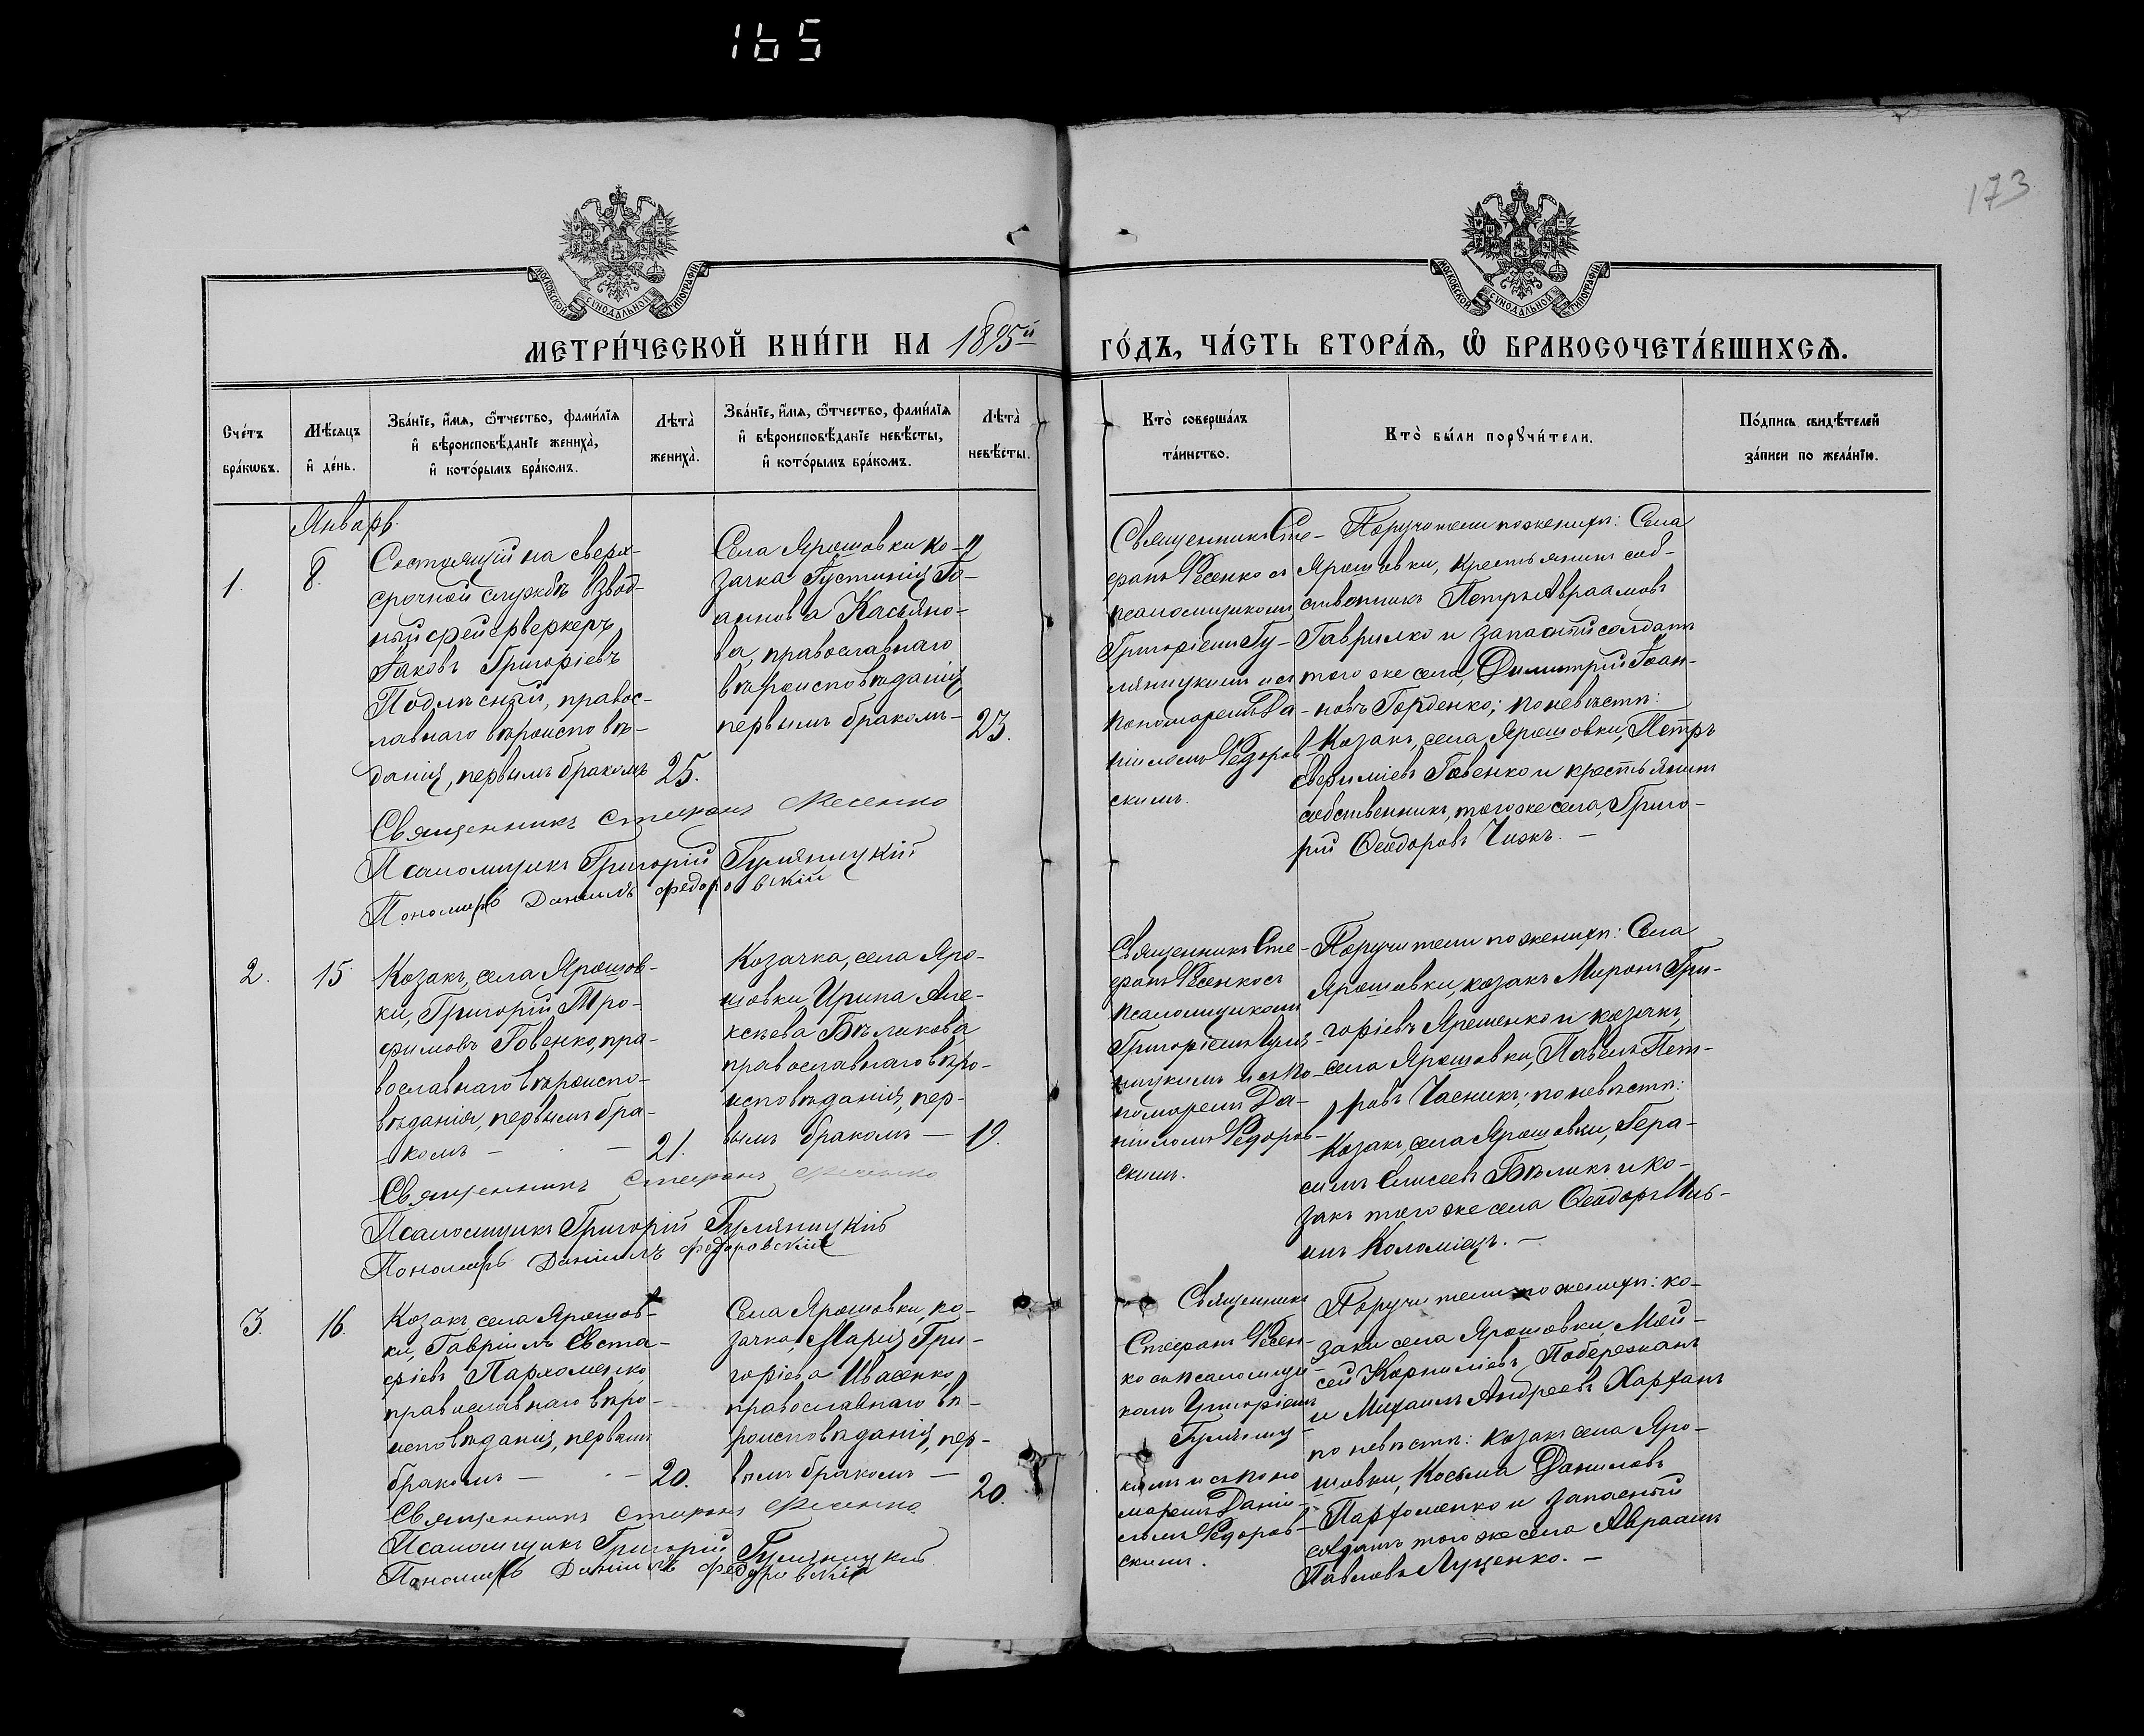 165
173
МОСКОВСКОЙ СУНОДАЛЬНОЙ ТИПОГРАФІИ
МОСКОВСКОЙ СУНОДАЛЬНОЙ ТИПОГРАФІИ
МЕТРИ́ЧЕСКОЙ КНИ́ГИ НА 1895й ГО́ДЪ, ЧА́СТЬ ВТОРА́Ѧ, Ѽ БРАКОСОЧЕТА́ВШИХСѦ.
Сче́тъ бра́кѡвъ.
Мѣ́сяцъ и҆ де́нь.
Зва́нїе, и҆́мя, ѻ҆́тчество, фами́лїя
и҆ вѣроисповѣ́данїе жениха̀,
и҆ кото́рымъ бра́комъ.
Лѣта̀ жениха̀.
Зва́нїе, и҆́мя, ѻ҆́тчество, фами́лїя
и҆ вѣроисповѣ́данїе невѣ́сты,
и҆ кото́рымъ бра́комъ.
Лѣта̀ невѣ́сты.
Кто̀ соверша́лъ
та́инство.
Кто̀ бы́ли порꙋчи́тели.
По́дпись свидѣ́телей
за́писи по жела́нїю.
Январь.
1.
8.
Состоящій на сверх-
срочной службѣ взвод-
ный фейерверкеръ
Іаковъ Григоріевъ
Подлѣсный, правос-
лавнаго вѣроисповѣ-
данія, первымъ бракомъ
25.
Села Ярошовки ко-
зачка Іустинія Іо-
аннова Касьяно-
ва, православнаго
вѣроисповѣданія,
первымъ бракомъ-
23.
Священникъ Сте-
фанъ Фесенко съ
псаломщикомъ
Григоріемъ Гу-
ляницкимъ и съ
пономаремъ Да-
ніиломъ Федоров
скимъ.
Поручители по женихѣ: Села
Ярошовки, крестьянинъ соб-
ственникъ Петръ Авраамовъ
Гаврилко и запасный солдатъ
того же села, Димитрій Іоан-
новъ Горденко; по невѣстѣ:
Козакъ, села Ярошовки, Петръ
Евфиміевъ Говенко и крестьянинъ
собственникъ, того же села, Григо-
рій Ѳеодоровъ Чижъ. —
Священникъ Стефанъ Фесенко
Псаломщикъ Григорій Гуляницкій
Пономарь Даніилъ Федоровскій
2.
15
Козакъ, села Ярошов-
ки, Григорій Тро-
фимовъ Говенко, пра-
вославнаго вѣроиспо-
вѣданія, первымъ бра-
комъ —
21.
Козачка, села Яро-
шовки, Ирина Але-
ксѣева Бѣликова,
православнаго вѣро-
исповѣданія, пер-
вымъ бракомъ —
19.
Священникъ Сте-
фанъ Фесенко съ
псаломщикомъ
Григоріемъ Гуля-
ницкимъ и съ по-
номаремъ Да-
ніиломъ Федоров-
скимъ.
Поручители по женихѣ: Села
Ярошовки, козакъ Миронъ Гри-
горіевъ Ярешенко и козакъ,
села Ярошовки, Павелъ Пет-
ровъ Часникъ; по невѣстѣ:
Козакъ, села Ярошовки, Гера-
симъ Елисеевъ Бѣликъ и ко-
закъ того же села Ѳеодоръ
Коломіецъ. —
Священникъ Стефанъ Фесенко
Псаломщикъ Григорій Гуляницкій
Пономарь Даніилъ Федоровскій
3.
16.
Козакъ, села Ярошов-
ки, Гавріилъ Евста-
фіевъ Пархоменко,
православнаго вѣро-
исповѣданія, первымъ
бракомъ —
20.
Села Ярошовки, ко-
зачка, Марія Гри-
горіева Ивасенко,
православнаго вѣ-
роисповѣданія, пер-
вымъ бракомъ —
20.
Священникъ
Стефанъ Фесен-
ко съ псаломщи-
комъ Григоріемъ
Гуляниц-
кимъ и съ поно
маремъ Даніи-
ломъ Федоров-
скимъ.
Поручители по женихѣ: ко-
заки села Ярошовки, Мои-
сей Корниліевъ Побережанъ
и Михаилъ Андреевъ Харханъ
по невѣстѣ: козакъ села Яро-
шовки, Косьма Даниловъ
Пархоменко и запасный
солдатъ того же села Авраамъ
Павловъ Луценко. —
Священникъ Стефанъ Фесенко
Псаломщикъ Григорій Гуляницкій
Пономарь Даніилъ Федоровскій